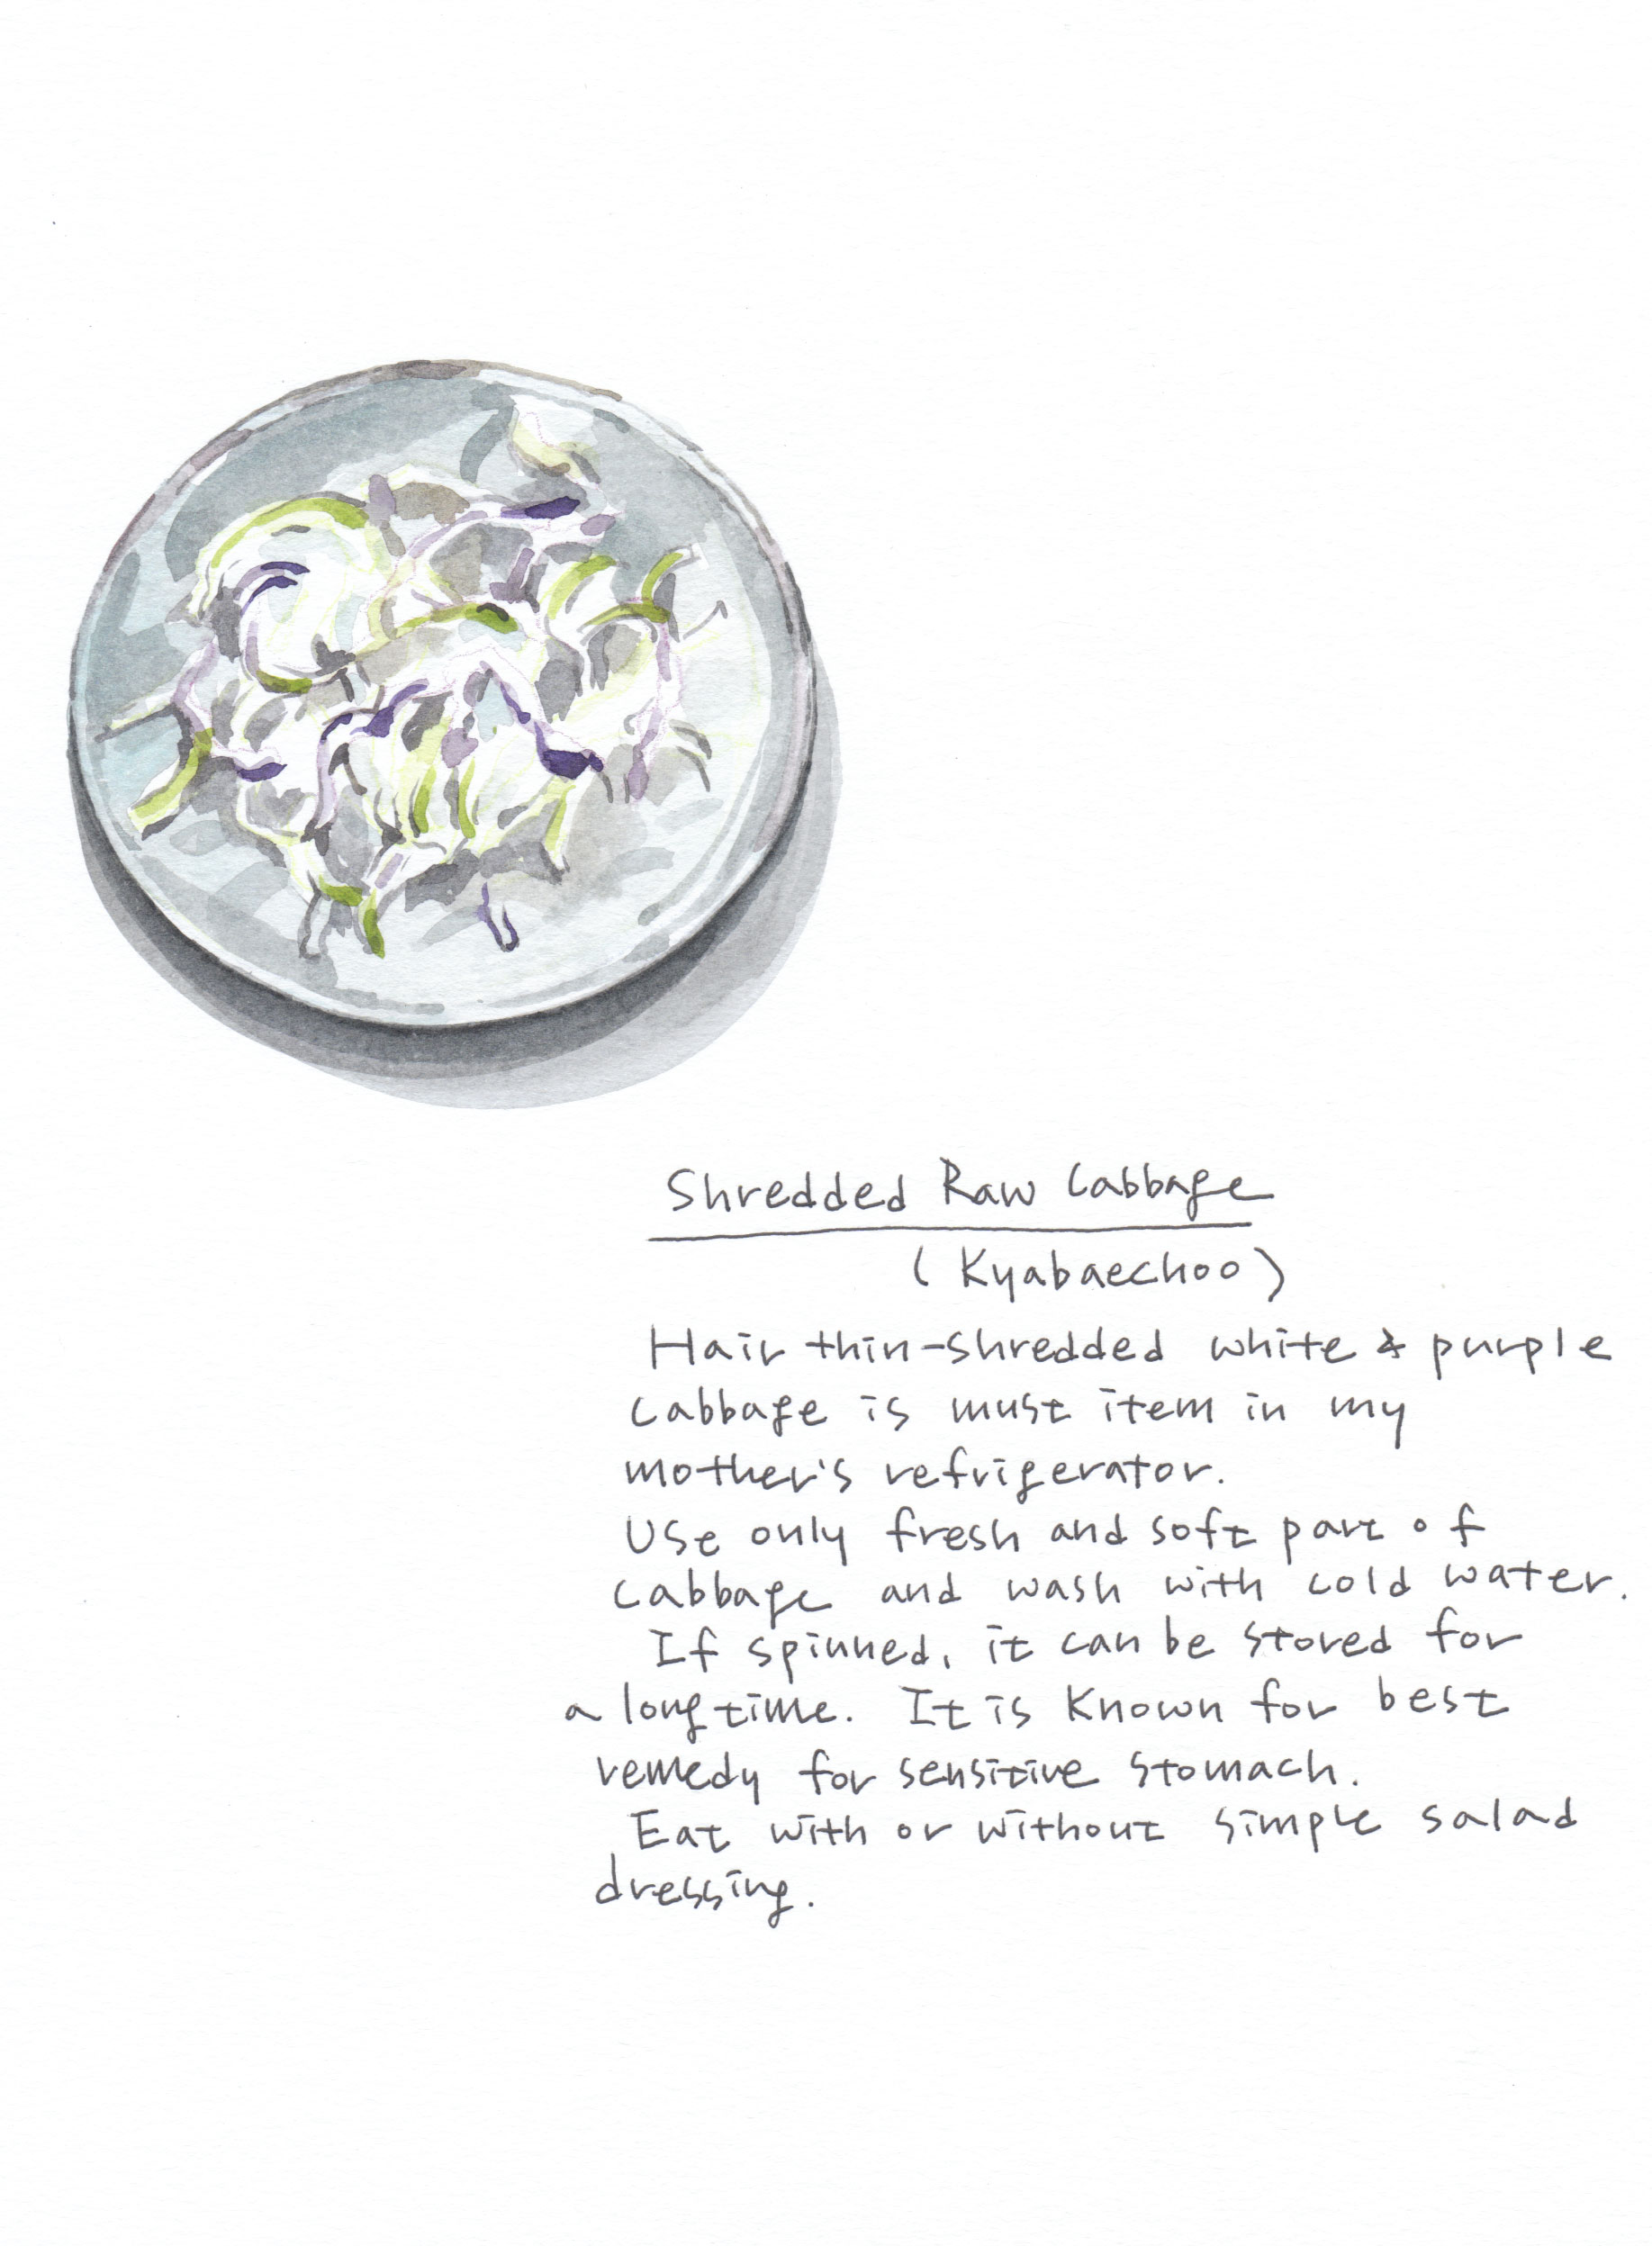 Shredded Raw Cabbage
(Kyabaechoo)
Hair thin-shredded white & purple
cabbage is must item in my
mother's refrigerator.
Use only fresh and soft part of
cabbage and wash with cold water.
If spinned, it can be stored for
a long time. It is known for best
remedy for sensitive stomach.
Eat with or without simple salad
dressing.